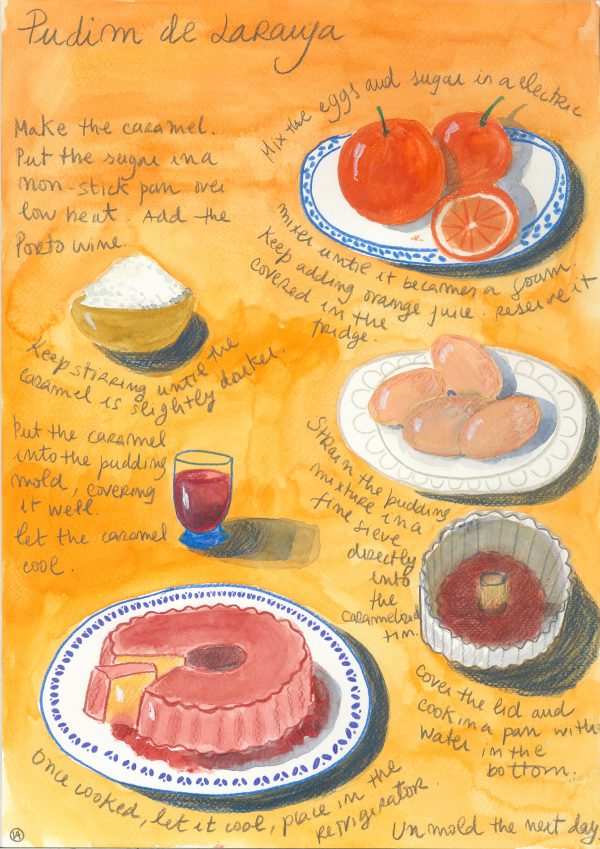 Pudim de Laranja
Make the caramel.
Put the sugar in a
non-stick pan over
low heat. Add the
Porto wine.
Keep stirring until the
caramel is slightly darker.
Put the caramel
into the pudding
mold, covering
it well.
Let the caramel
cool.
Mix the eggs and sugar in a electric
mixer until it becomes a foam.
Keep adding orange juice. Reserve it
covered in the
fridge.
Strain the pudding
mixture in a
fine sieve
directly
into
the
caramelized
tin.
Cover the lid and
cook in a pan with
water in the
bottom.
Once cooked, let it cool, place in the
refrigerator.
Unmold the next day.